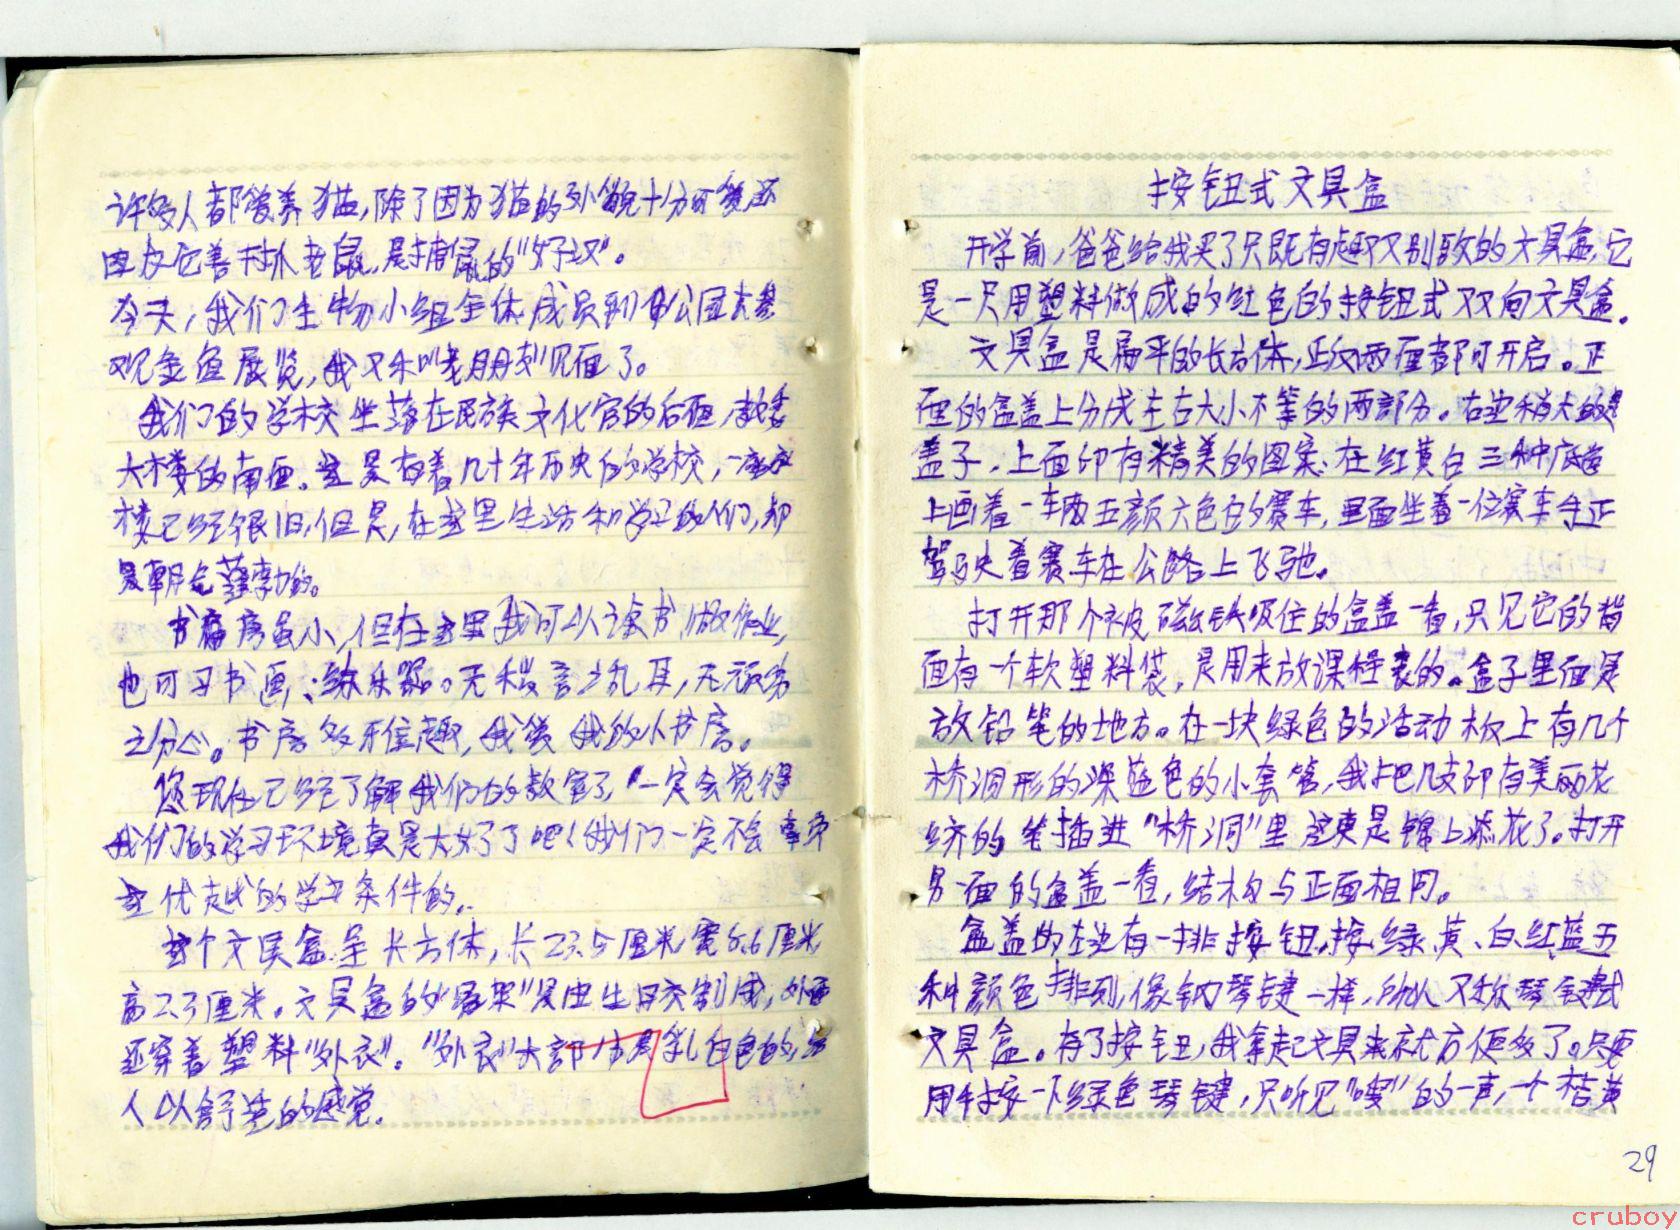 许多人都爱养猫,除了因为猫的外貌十分可爱还
因为它善于抓老鼠,是捕鼠的"好汉"。
今天,我们生物小组全体成员到公园去参
观金鱼展览,我又和"老朋友"见面了。
我们的学校坐落在民族文化宫的后面,教委
大楼的南面。这是有着几十年历史的学校,一座座
楼已经很旧,但是,在这里生活和学习的人们,却
是朝气蓬勃的。
书房虽小,但在这里我可以读书,做作业,
也可习书画、练乐器。无杂言之乱耳,无
之分心。书房多么有趣,我爱我的小书房。
您现在已经了解我们的教室了,一定会觉得
我们的学习环境真是太好了吧!我们一定不会辜负
这优越的学习条件的。
这个文具盒呈长方体,长23.5厘米,宽8.6厘米,
高2.3厘米。文具盒的"骨架"是由制成,外面
还穿着塑料"外衣"。"外衣"大部分是乳白色的,给
人以舒适的感觉。
按钮式文具盒
开学前,爸爸给我买了只既有趣又别致的文具盒,它
是一只用塑料做成的红色的按钮式双向文具盒。
文具盒是扁平的长方体,正反两面都可开启。正
面的盒盖上分成左右大小不等的两部分。右边稍大的是
盖子,上面印有精美的图案:在红黄白三种底色
上画着一辆五颜六色的赛车,里面坐着一位赛车手正
驾驶着赛车在公路上飞驰。
打开那个被磁铁吸住的盒盖一看,只见它的背
面有一个软塑料袋,是用来放课程表的。盒子里面是
放铅笔的地方。在一块绿色的活动木板上有几个
桥洞形的深蓝色的小套管,我把几支印有美丽花
纹的笔插进"桥洞"里这更是锦上添花了。打开
另一面的盒盖一看,结构与正面相同。
盒盖的左边有一排按钮,按绿、黄、白、红、蓝五
种颜色排列,像钢琴键一样,所以又称琴键式
文具盒。有了按钮,我拿起文具来就方便多了。只要
用手按一下绿色琴键,只听见"嗖"的一声,一个桔黄
29
cruboy